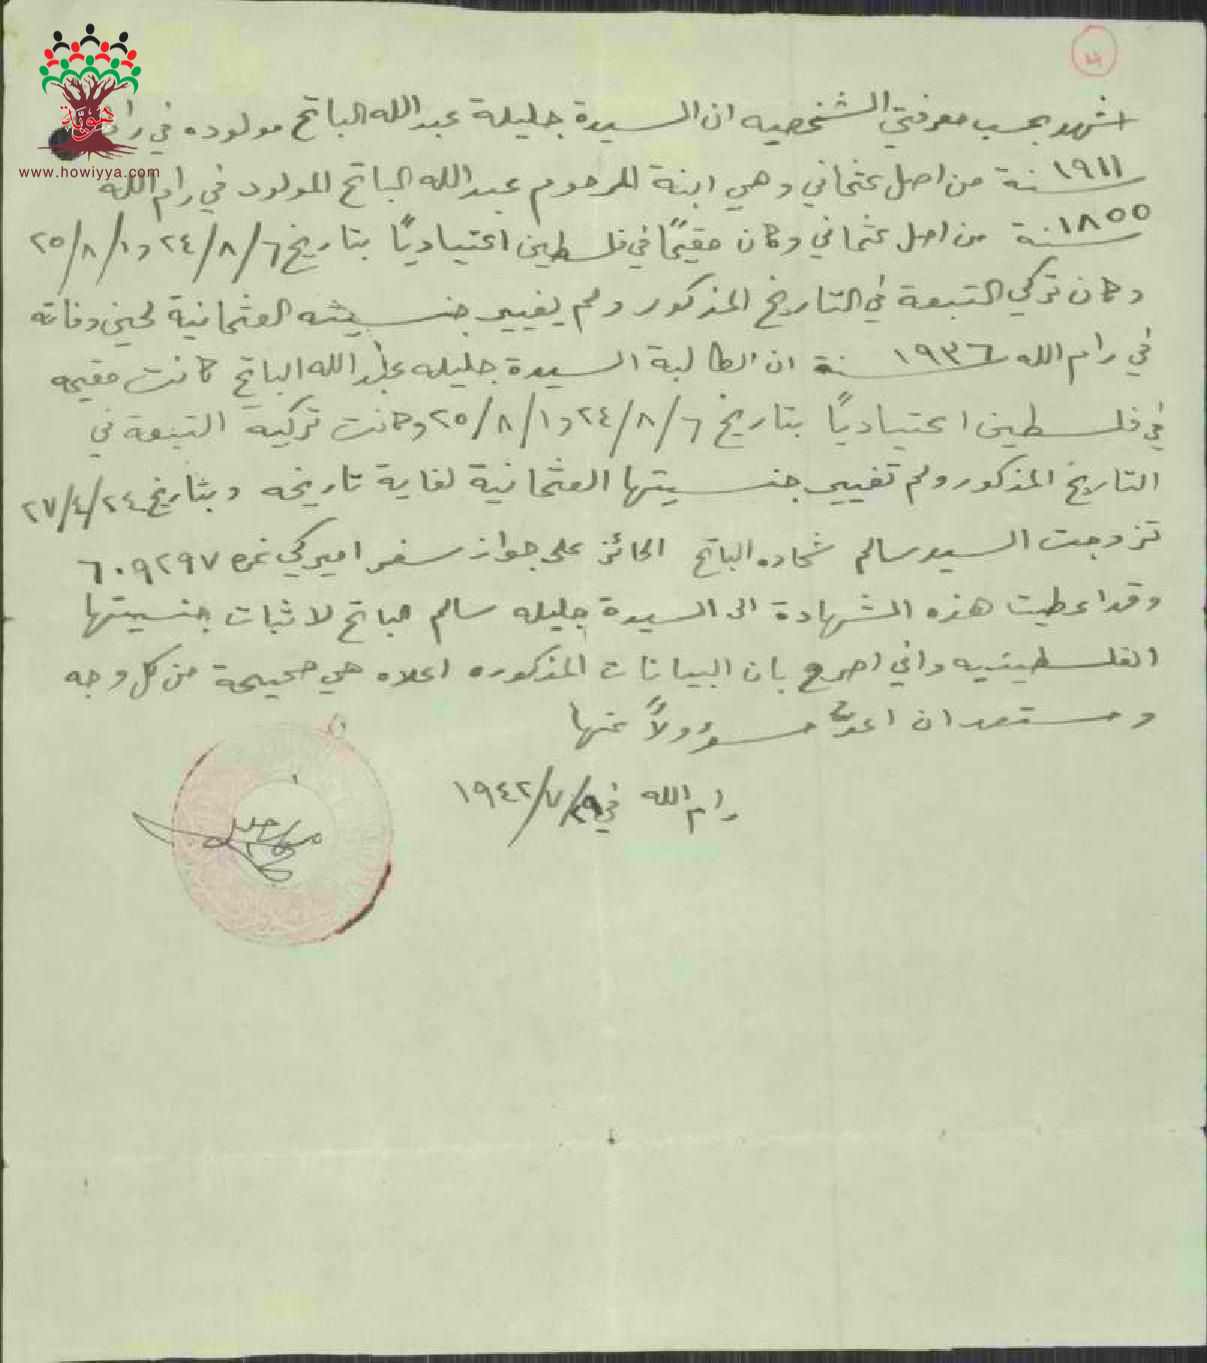 هوية
www.howiyya.com
اشهد بحسب معرفتي الشخصيه ان السيدة جليلة عبدالله الباتح مولوده في رام
سنة ١٩١١ من اصل عثماني وهي ابنة المرحوم عبدالله الباتح المولود في رام الله
سنة ١٨٥٥ من اصل عثماني وكان مقيمًا في فلسطين اعتياديًا بتاريخ ٢٤/٨/٦ و ٢٥/٨/١
وكان تركي التبعة في التاريخ المذكور ولم يغيير جنسيته العثمانية لحين وفاته
في رام الله سنة ١٩٣٦ ان الطالبة السيدة جليله عبدالله الباتح كانت مقيمه
في فلسطين اعتياديًا بتاريخ ٢٤/٨/٦ و ٢٥/٨/١ وكانت تركية التبعة في
التاريخ المذكور ولم تغيير جنسيتها العثمانية لغاية تاريخه وبتاريخ ٢٧/٤/٢٤
تزوجت السيد سالم شحاده الباتح الحائز على جواز سفر اميركي نمره ٦٠٩٢٩٧
وقد اعطيت هذه الشهادة الى السيدة جليله سالم الباتح لاثبات جنسيتها
الفلسطينيه واني اصرح بان البيانات المذكوره اعلاه هي صحيحة من كل وجه
ومستعد ان اعد مسؤولاً عنها
رام الله في ١٩٤٢/٧/٢٩